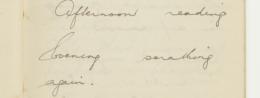 Afternoon reading
Evening
again.